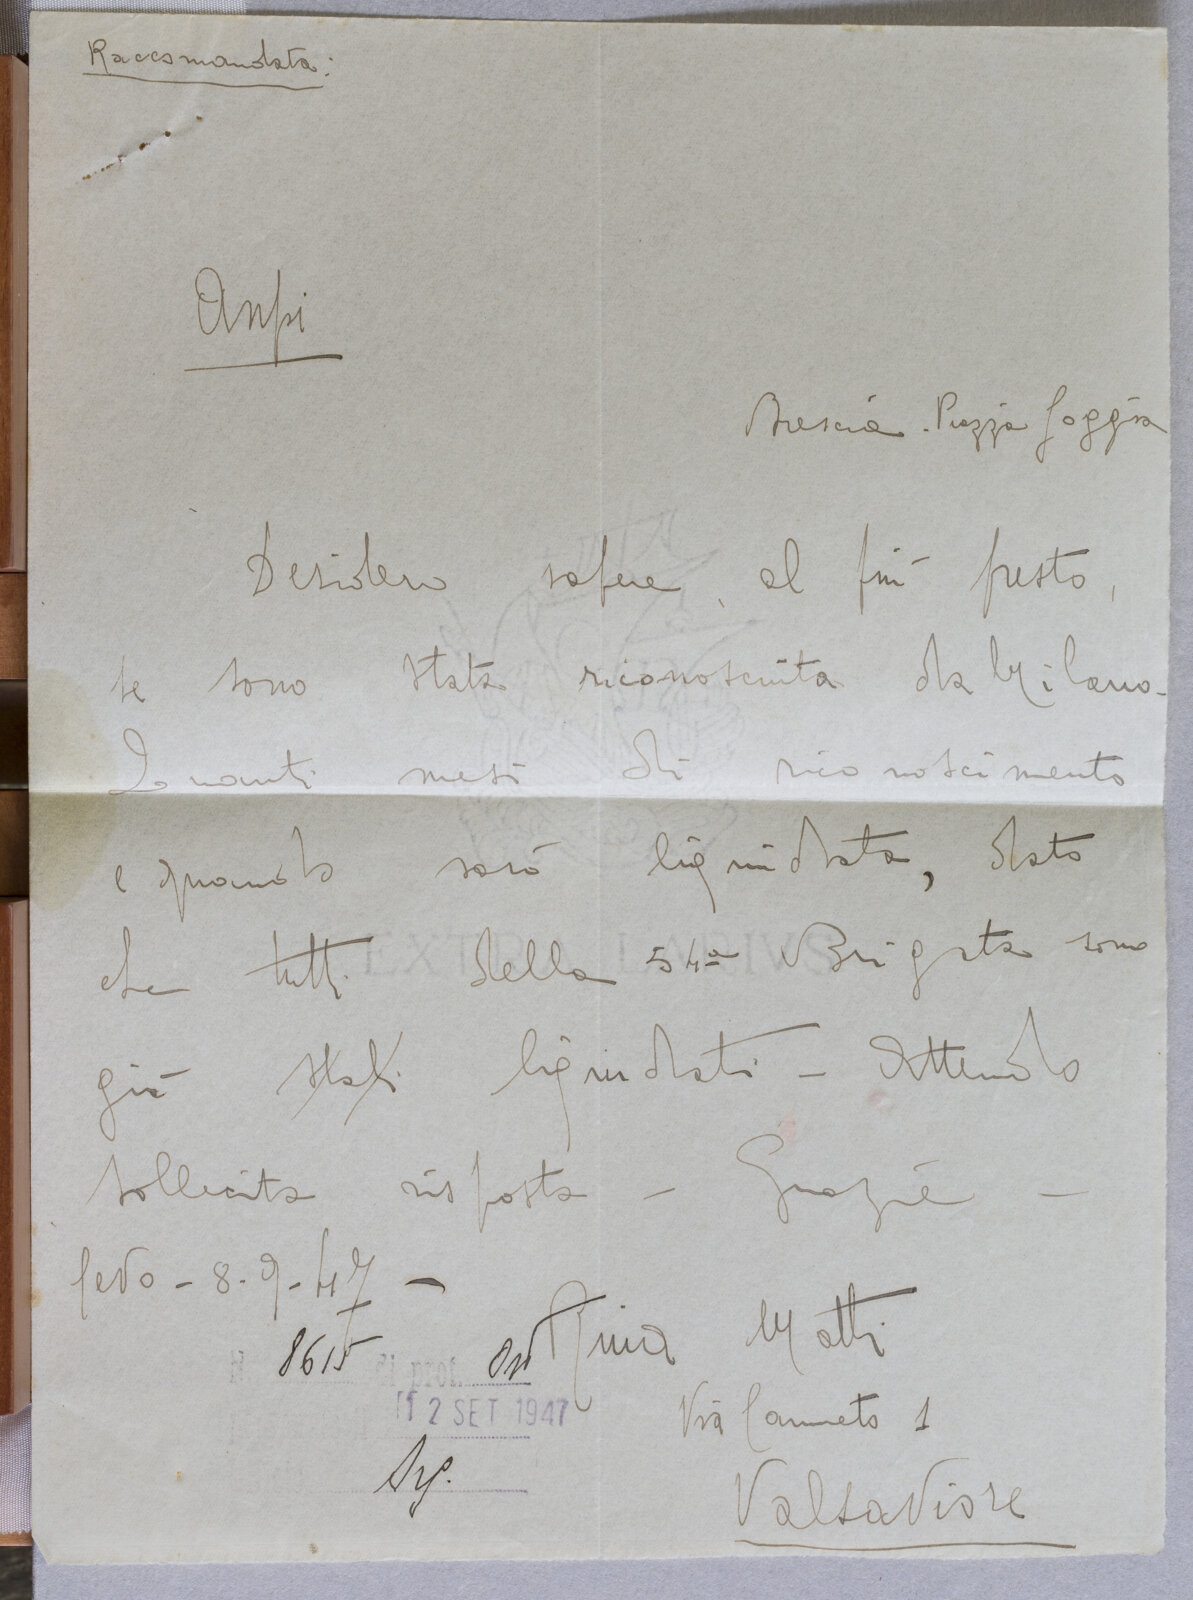 Raccomandata:
Anpi
Brescia. Piazza Loggia
Desidero sapere, al più presto,
se sono stata riconosciuta da Milano-
Quanti mesi di riconoscimento
e quando sarò liquidata, dato
che tutti della 54ª Brigata sono
già stati liquidati - Attendo
sollecita risposta - Grazie -
Cevo - 8-9-47 -
Rina Matti
N. 8615 di prot.
12 SET 1947
Via Canneto 1
Valsaviore
EXTRA LARIVS